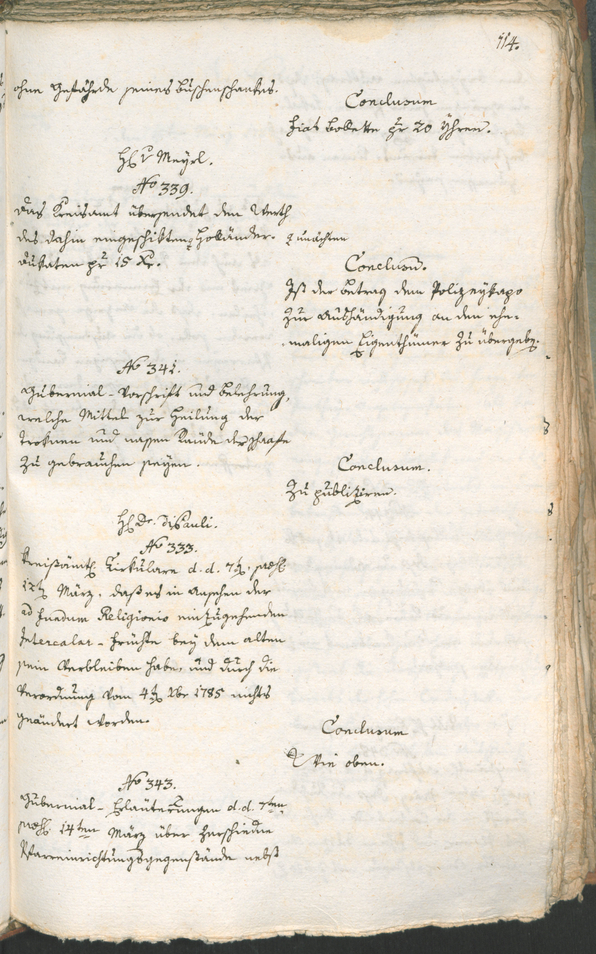 114.
ohne Gefährde seines Buschenschankes.
Conclusum
Fiat Bolette pr 20 Yhren.
H: v Meyrl.
No 339.
Das Kreisamt übersendet den Werth
des dahin eingeschikten Holländer-
dukaten pr 15 Kr.
Conclusum.
Ist der Betrag dem Polizeykapo
zur Aushändigung an den ehe-
maligen Eigenthümer zu übergeben.
No 341.
Gubernial-Vorschrift und Belehrung,
welche Mittel zur Heilung der
troknen und nassen Raude der Schaafe
zu gebrauchen seyen.
Conclusum.
Zu publiziren.
H: Dr. DiPauli.
No 333.
Kreisämtl. Zirkulare d. d. 7t, præs.
12t März, daß es in Ansehen der
ad Fundum Religionis einzugehenden
Intercalar-Früchte bey dem alten
sein Verbleiben habe, und durch die
Verordnung vom 4t Xbr 1785 nichts
geändert worden.
Conclusum
Wie oben.
No 343.
Gubernial-Erläuterungen d. d. 7ten
præs. 14ten März über verschiedne
Pfarreinrichtungsgegenstände nebst